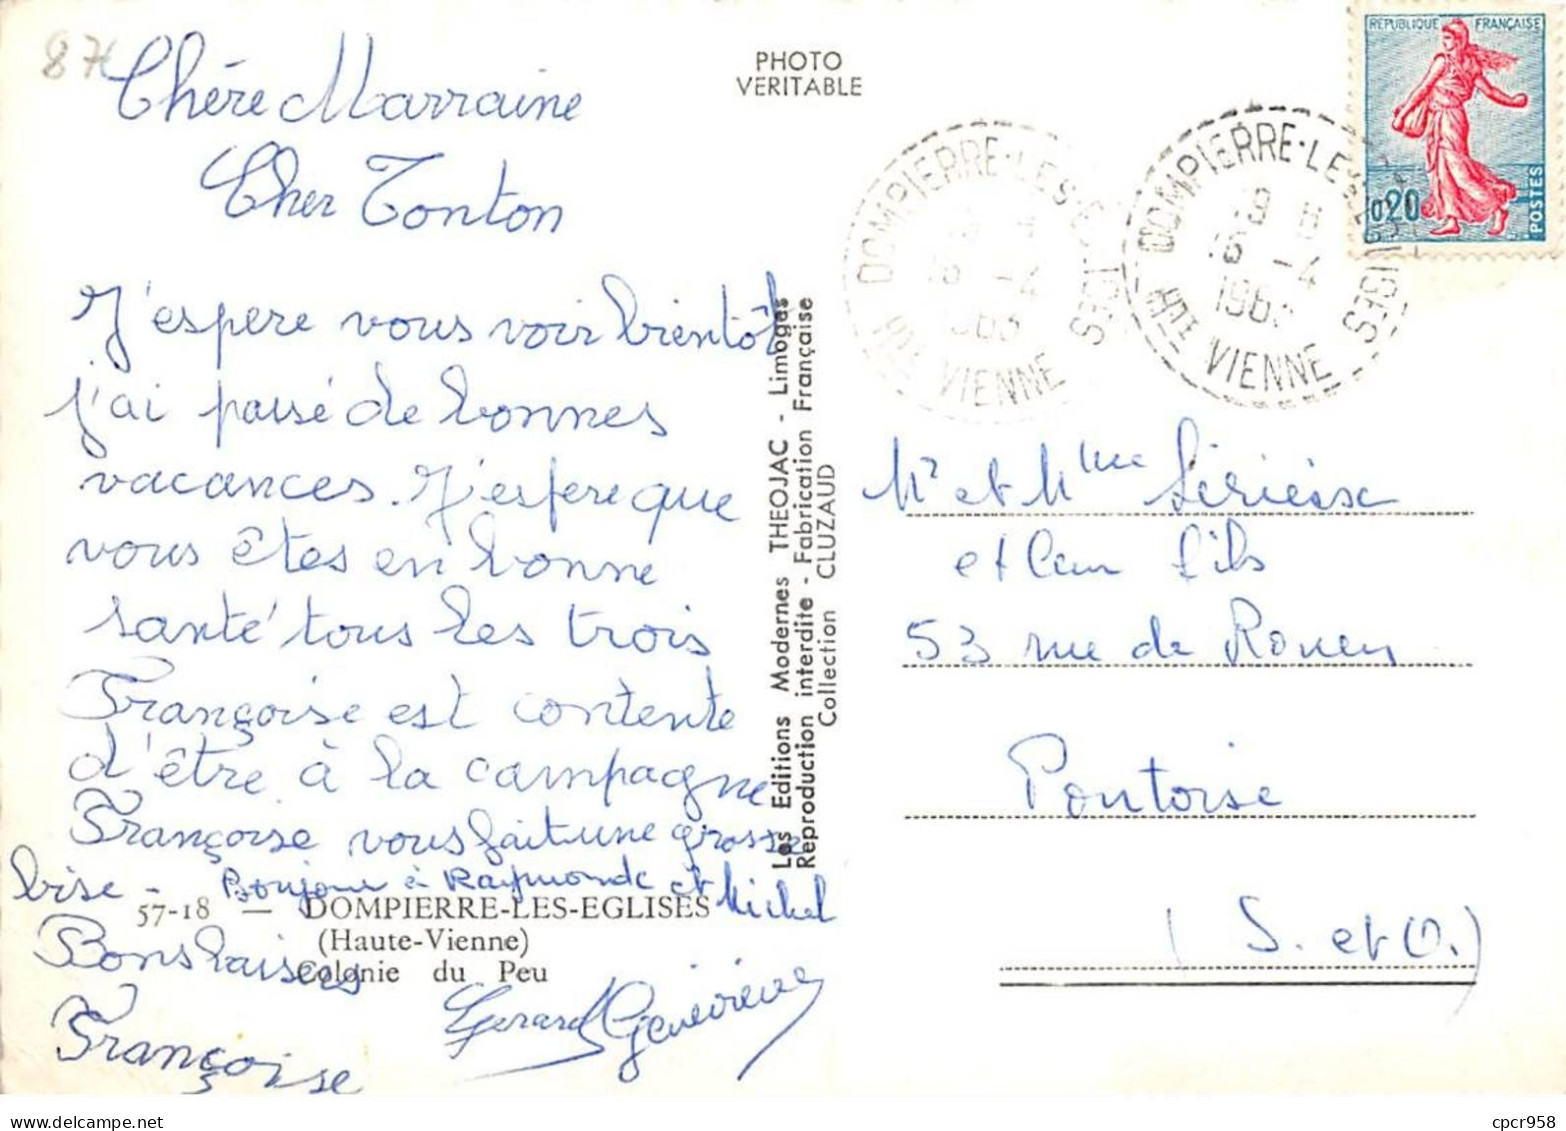 87
Chére Marraine
Cher Tonton
J'espere vous voir bientôt
j'ai passé de bonnes
vacances. J'espere que
vous êtes en bonne
santé tous les trois
Françoise est contente
d'être à la campagne
Françoise vous fait une grosse
bise - Bonjour à Raymonde et Michel
57-18 — DOMPIERRE-LES-EGLISES
(Haute-Vienne)
Colonie du Peu
Bons baisers
Françoise
Gerard Geneviève
PHOTO
VERITABLE
Les Editions Modernes THEOJAC - Limoges
Reproduction interdite - Fabrication Française
Collection CLUZAUD
REPUBLIQUE FRANÇAISE
0,20
POSTES
DOMPIERRE-LES-EGLISES
16 -4
1963
HTE VIENNE
DOMPIERRE-LES-EGLISES
16 -4
196
HTE VIENNE
Mr et Mme
et leur fils
53 rue de Rouen
Pontoise
(S. et O.)
Delcampe.net
cpcr958